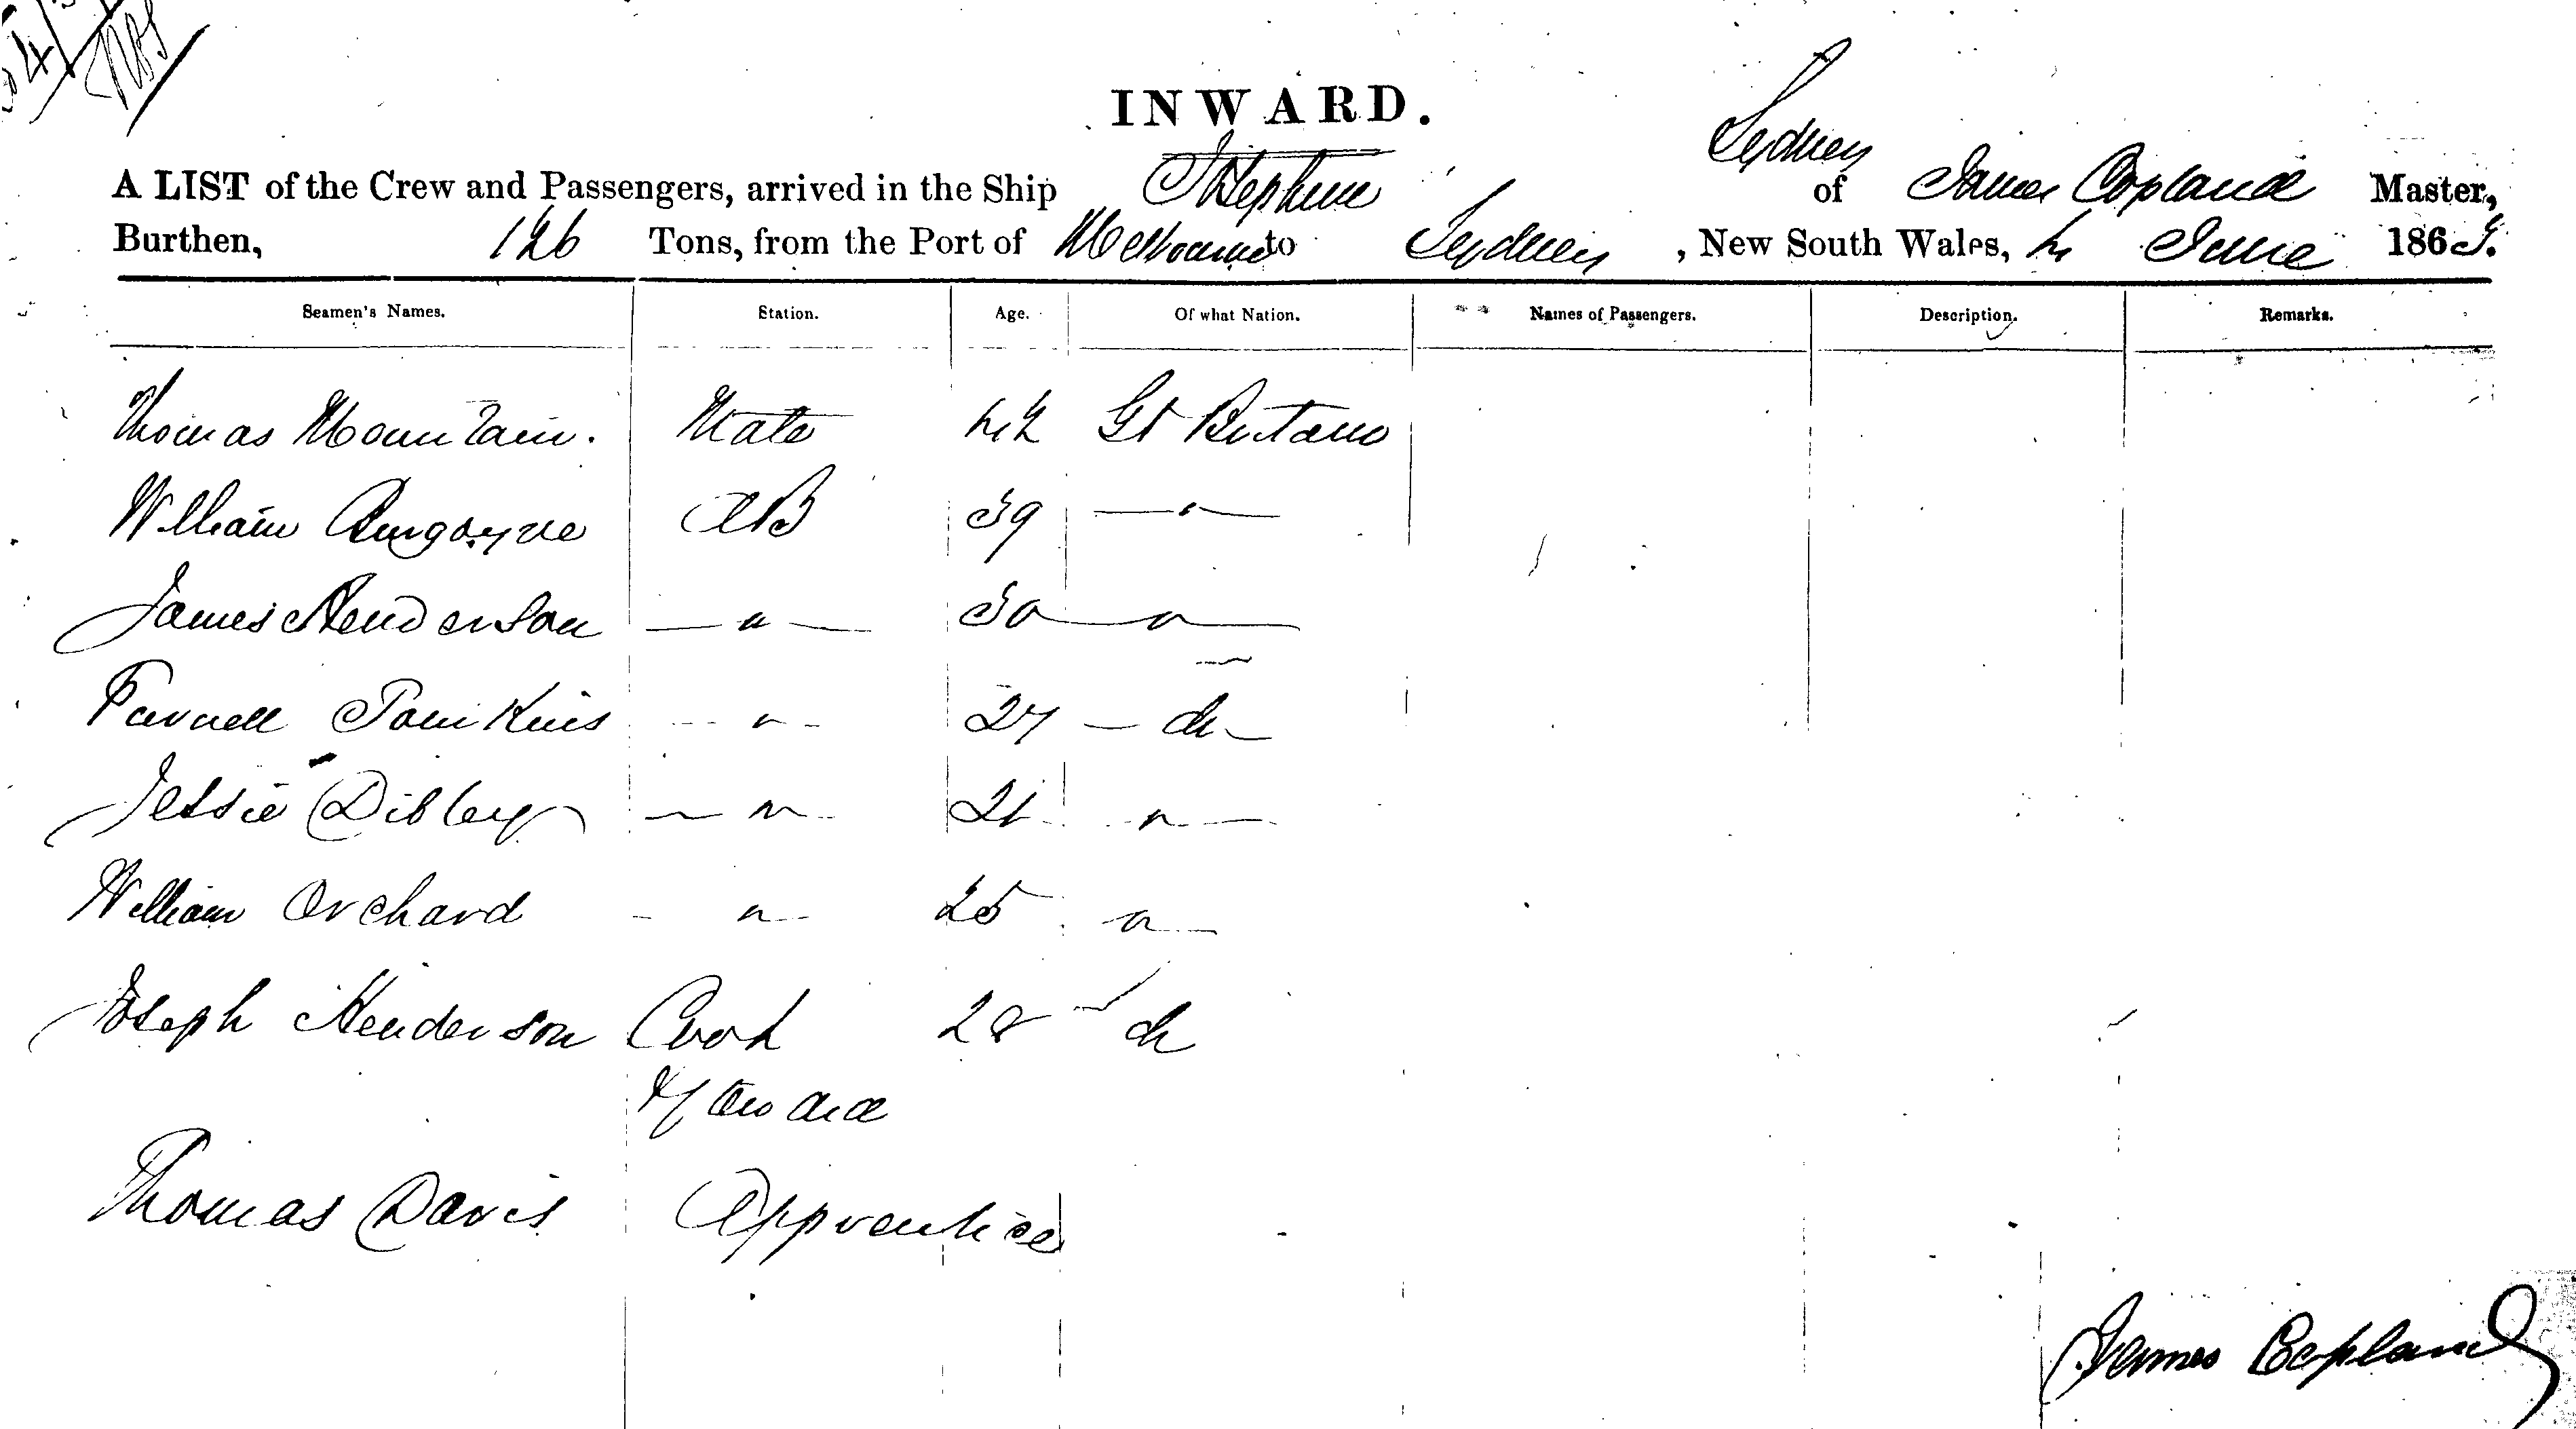 INWARD.
Sydney
A LIST of the Crew and Passengers, arrived in the Ship of James Copland Master,
Burthen, 126 Tons, from the Port of Melbourne to Sydney, New South Wales, June 186
Seamen's Names. Station. Age. Of what Nation. Names of Passengers. Description. Remarks.
Thomas Mountain. Mate Gt Britain
William Burgoyne AB 39 — " —
James Henderson — " — 30 — " —
Parnell Tomkins — " — 27 — do —
Jessie Dibley — " — 21 " —
William Orchard - " - 25 " —
Joseph Henderson Cook 28 do
Steward
Thomas Davis Apprentice
James Copland